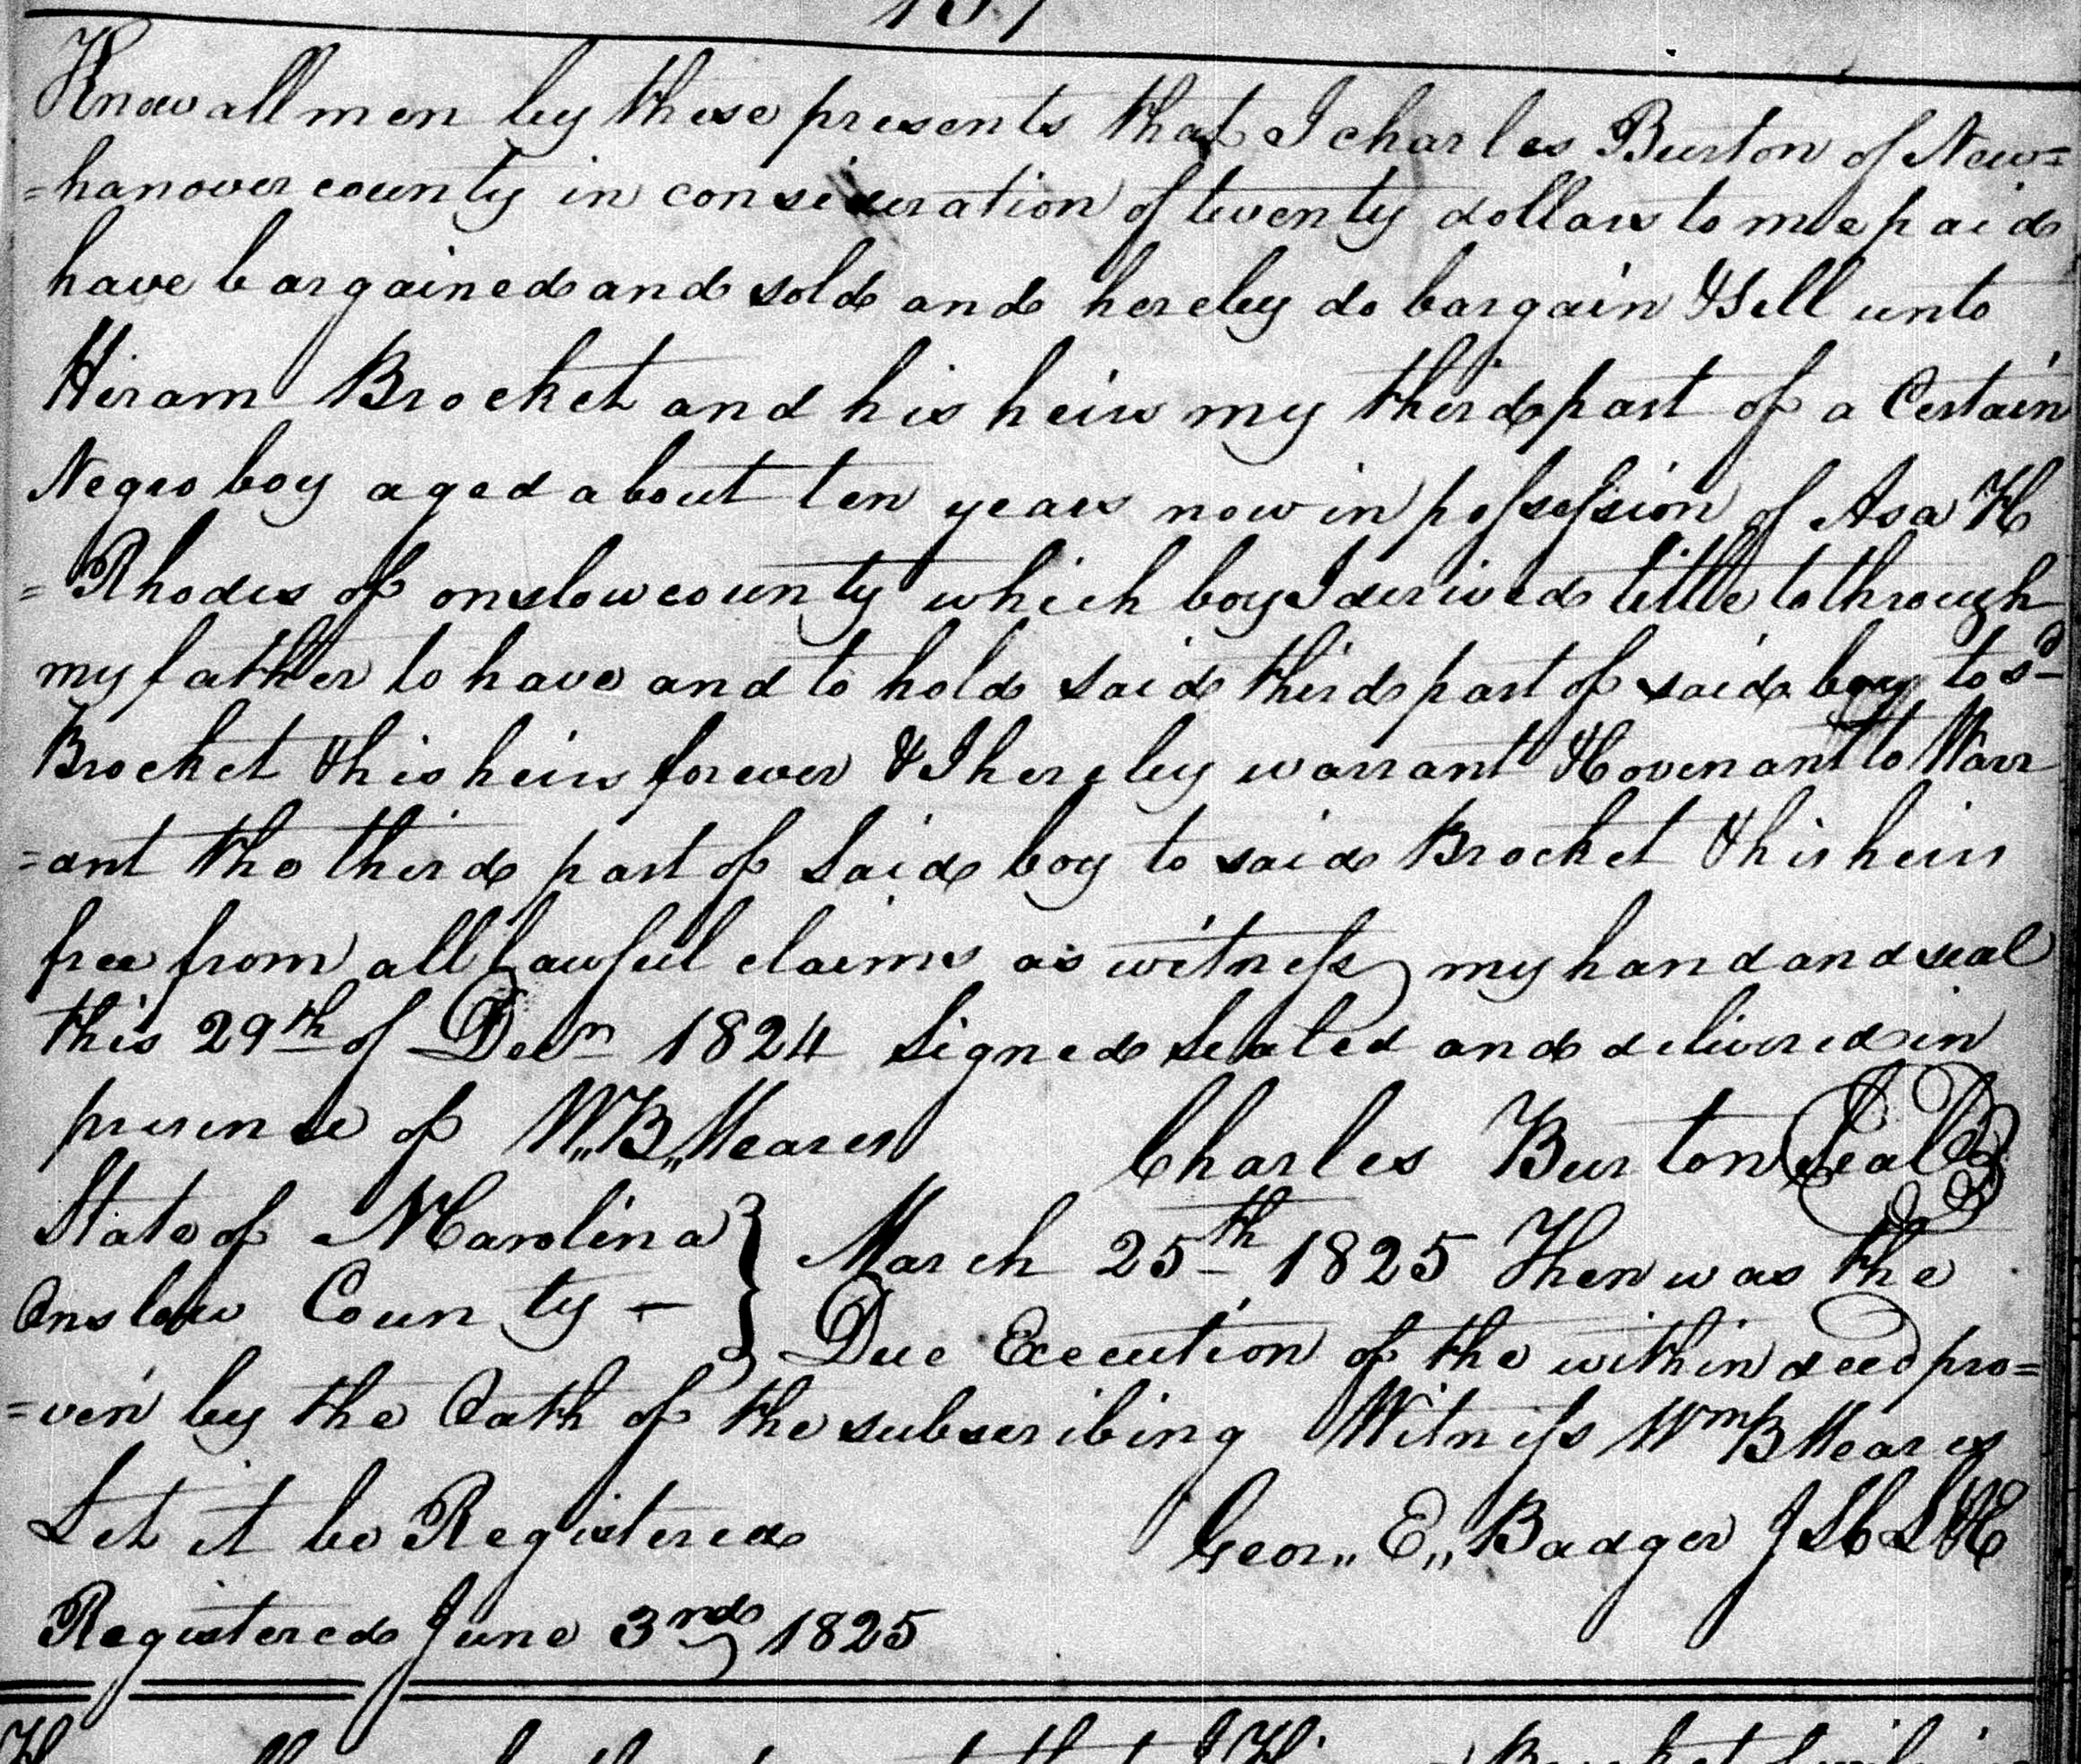 Know all men by these presents that I Charles Burton of New=
=hanover county in consideration of twenty dollars to me paid
have bargained and sold and hereby do bargain & Sell unto
Hiram Brocket and his heirs my third part of a Certain
Negro boy aged about ten years now in possession of Asa H
=Rhodes of onslow county which boy I derived tittle to through
my father to have and to hold said third part of said boy to sd
Brocket & his heirs forever & I hereby warrant & Covenant to Warr
=ant the third part of Said boy to said Brocket & his heirs
free from all Lawful claims as witness my hand and seal
this 29th of Decr 1824 Signed Sealed and delivered in
presence of W,,B,,Meares Charles Burton Seal
State of N Carolina } March 25th 1825 Then was the
Onslow County } Due Execution of the within deed pro=
=ven by the Oath of the subscribing Witness Wm B Meares
Let it be Registered Geor,, E,, Badger J S C L & E
Registered June 3rd 1825